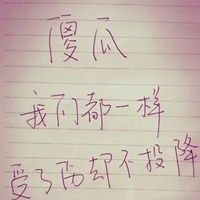 傻瓜
我们都一样
受了伤却不投降